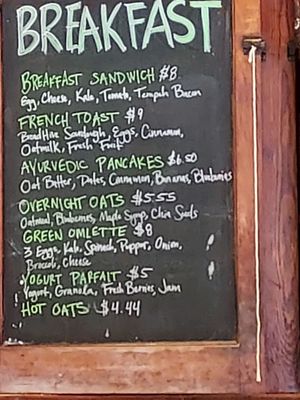 BREAKFAST
BREAKFAST SANDWICH $8
Egg, Cheese, Kale, Tomato, Tempeh Bacon
FRENCH TOAST $9
BreadHive Sourdough, Eggs, Cinnamon,
Oatmilk, Fresh Fruit
AYURVEDIC PANCAKES $6.50
Oat Batter, Dates, Cinnamon, Bananas, Blueberries
OVERNIGHT OATS $5.55
Oatmeal, Blueberries, Maple Syrup, Chia Seeds
GREEN OMLETTE $8
3 Eggs, Kale, Spinach, Pepper, Onion,
Broccoli, Cheese
YOGURT PARFAIT $5
Yogurt, Granola, Fresh Berries, Jam
HOT OATS $4.44